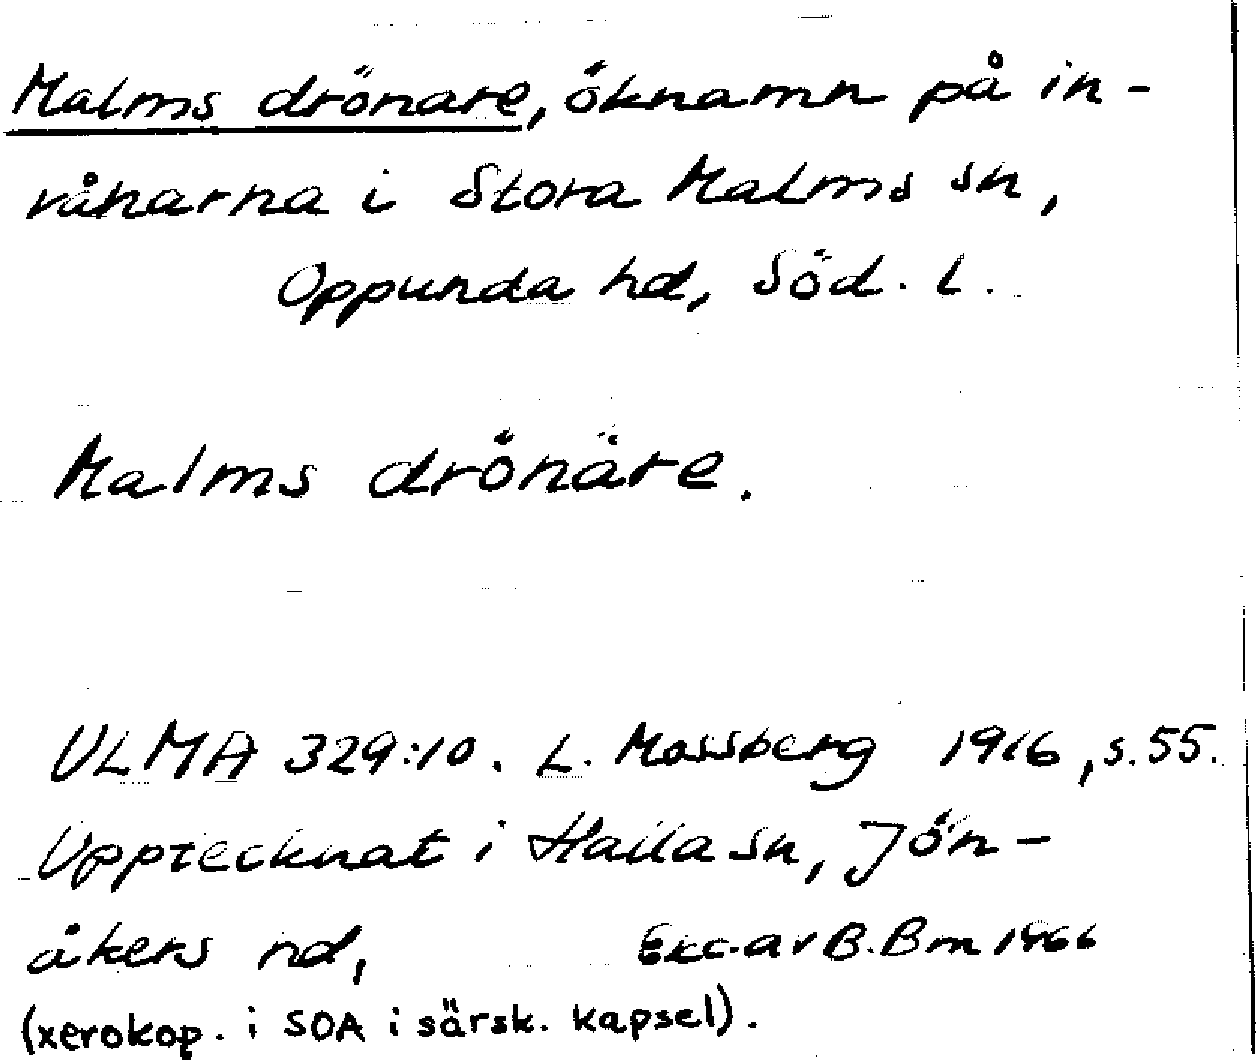 Malms drönare, öknamn på in-
vånarna i Stora Malms sn,
Oppunda hd, Söd. l.
Malms drönäre.
ULMA 329:10. L. Mossberg 1916, s. 55.
Upptecknat i Halla sn, Jön-
åkers hd, Exc. av B. Bm 1966
(xerokop. i SOA i särsk. kapsel).